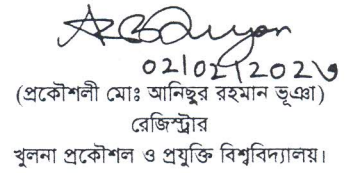 02/02/202৩
(প্রকৌশলী মোঃ আনিছুর রহমান ভূঞা)
রেজিস্ট্রার
খুলনা প্রকৌশল ও প্রযুক্তি বিশ্ববিদ্যালয়।